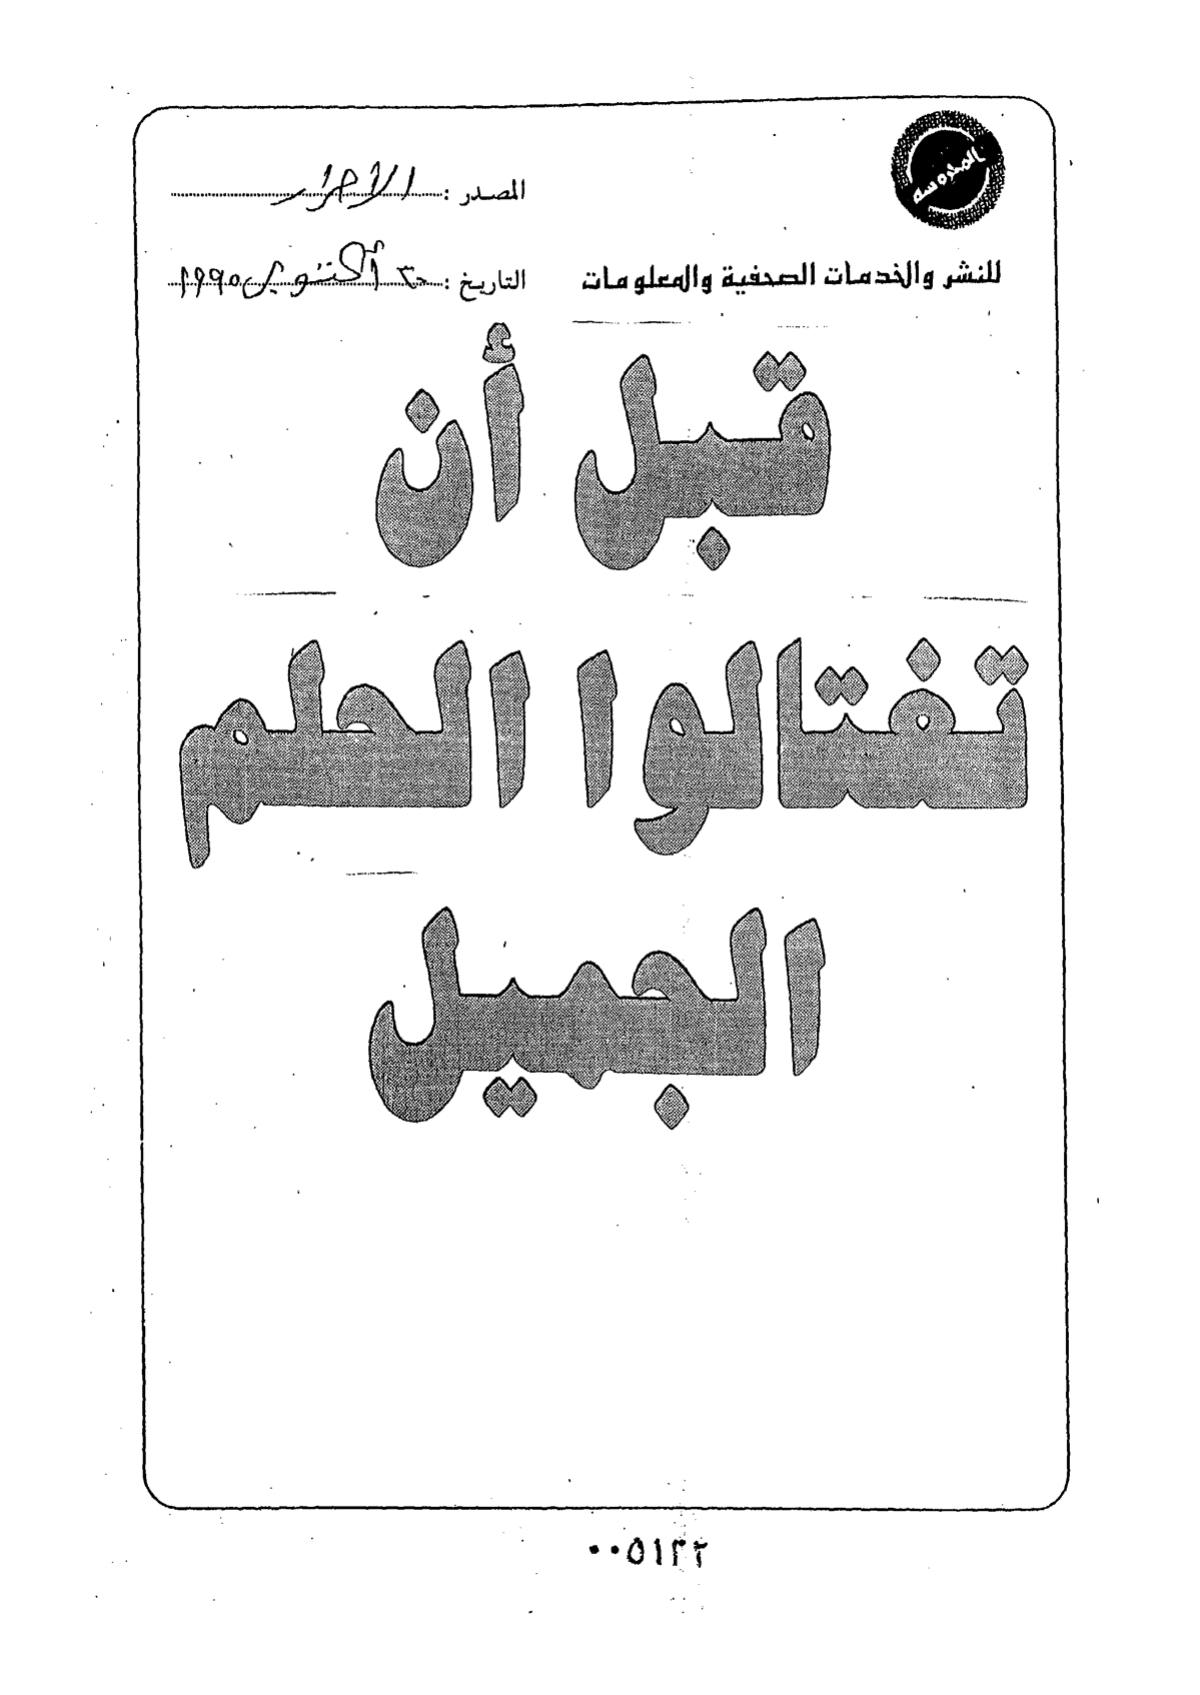 المحروسة
المصدر : الأحرار
للنشر والخدمات الصحفية والمعلومات
التاريخ : ٣٠ أكتوبر ١٩٩٥
قبل أن
تغتالوا الحلم
الجميل